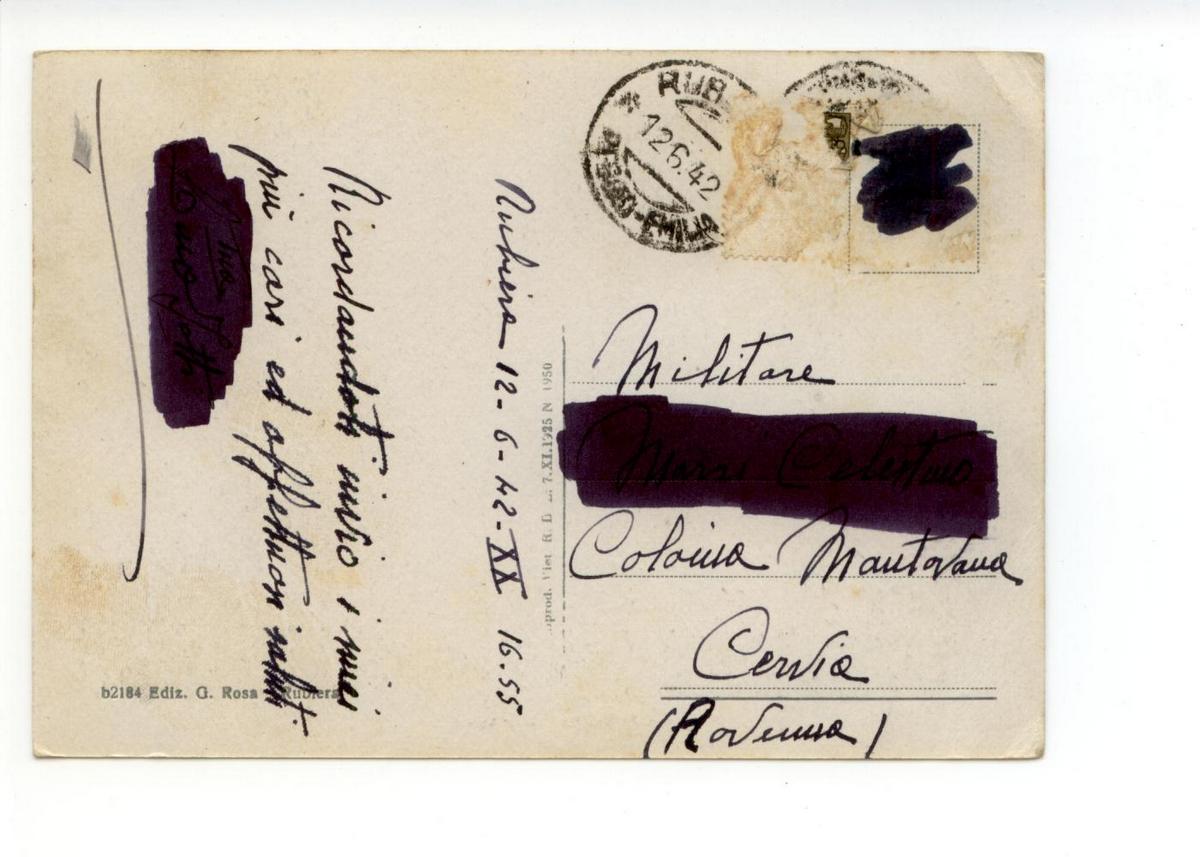 RUB
12.6.42
REGGIO-EMILIA
Rubiera 12-6-42-XX 16.55
Ricordandoti invio i miei
più cari ed affettuosi saluti.
tuo
Militare
Celestino
Colonia Mantovana
Cervia
(Ravenna)
7.XI.1925 N 1950
b2184 Ediz. G. Rosa Rubiera